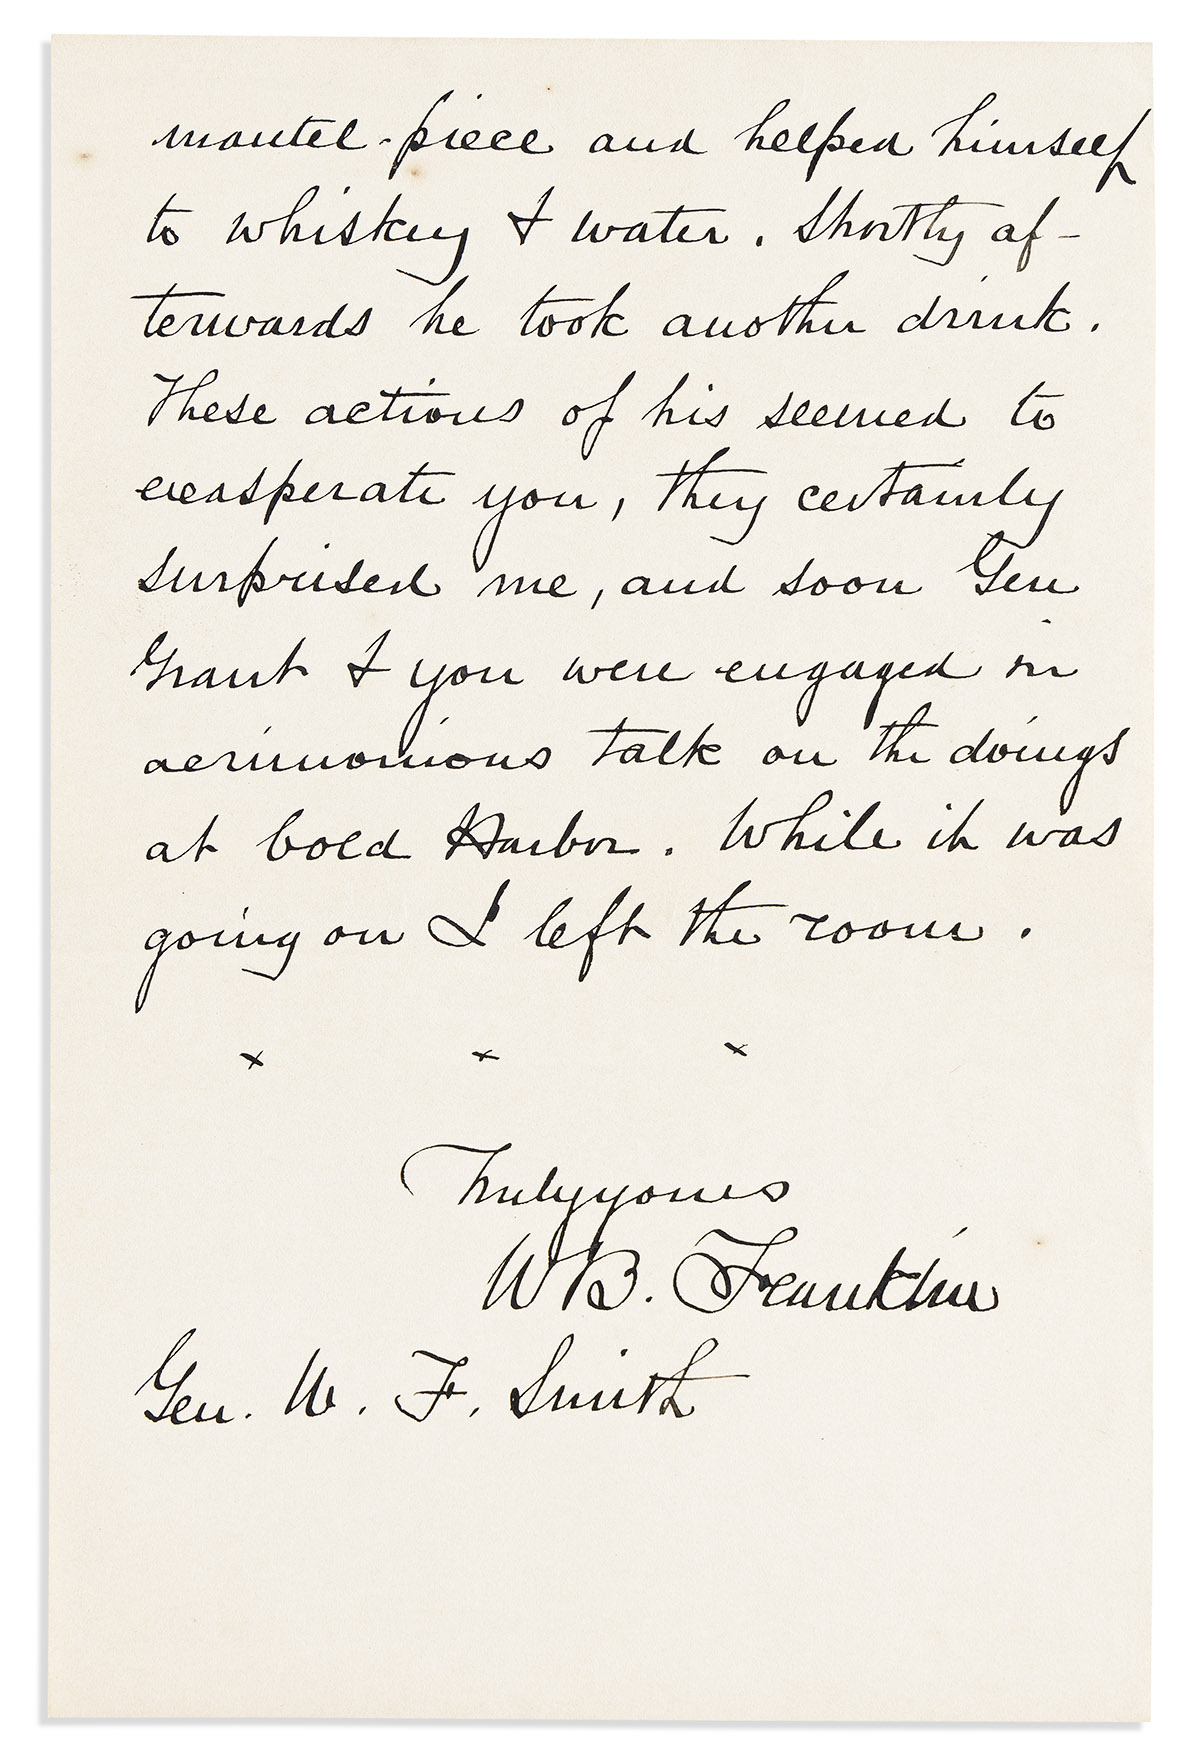 mantel-piece and helped himself
to whiskey & water. Shortly af-
terwards he took another drink.
These actions of his seemed to
exasperate you, they certainly
surprised me, and soon Gen
Grant & you were engaged in
acrimonious talk on the doings
at Cold Harbor. While it was
going on I left the room.
x x x
Truly yours
W B. Franklin
Gen. W. F. Smith